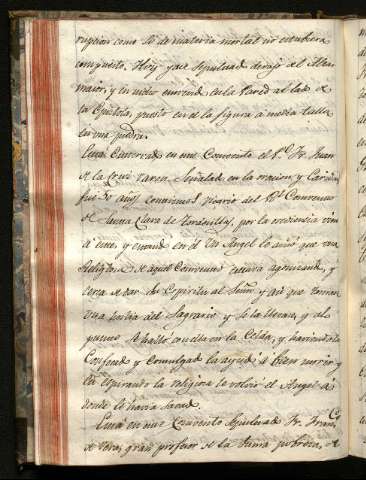 rupcion como si de materia mortal no estubiera
compuesto. Hoy yace sepultado debajo del Altar
maior, y en medio en la Pared al lado de
la Epistola, puesto en el la figura a media talla
en una piedra.
Está Enterrado en este Convento el Pe. Fr. Juan
de la Cruz varon señalado en la oracion, y Caridad
fue 30 años continuos vicario del Rl. Convento
de Santa Clara de Tordesillas, por la obediencia vino
á este, y estando en él Un Angel le avisó que una
Religiosa de aquel Convento estava agonizando, y
cerca de dar su Espiritu al Señor, y así que tomase
una hostia del Sagrario y se la llevara, y al
punto se halló con ella en la Celda, y haviendola
Confesado y Comulgado la ayudó á bien morir, y
en espirando la religiosa le volvió el Angel a
donde le havia sacado.
Está en este Convento Sepultado Fr. Franco.
de Tora, gran profesor de la suma pobreza, de